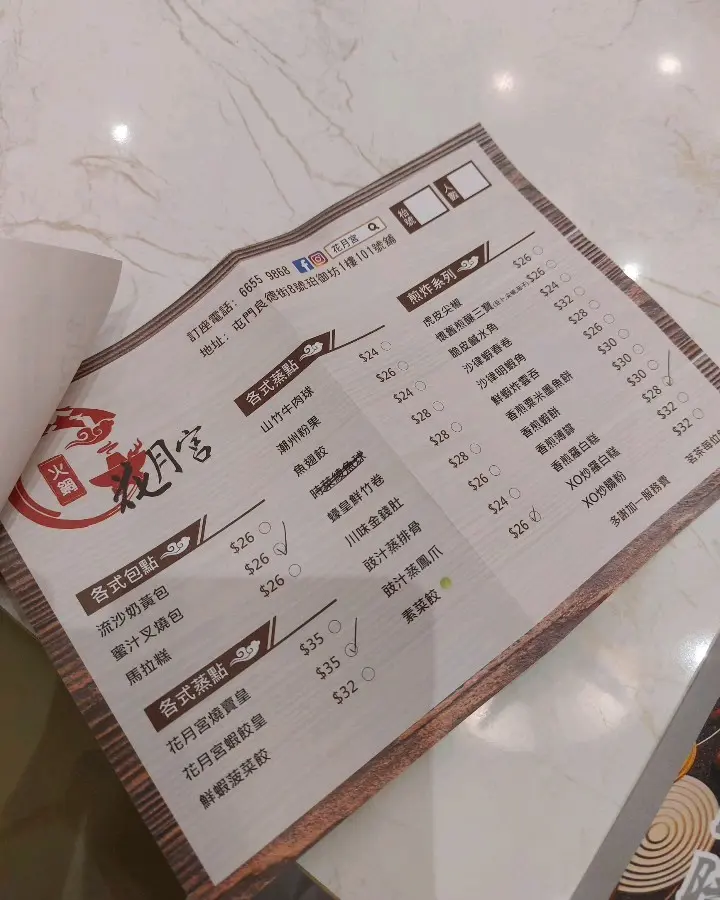 枱號
人數
花月宮
訂座電話：6655 9868
地址：屯門良德街8號珀御坊1樓101號舖
火鍋
花月宮
各式包點
流沙奶黃包 $26
蜜汁叉燒包 $26
馬拉糕 $26
各式蒸點
花月宮燒賣皇 $35
花月宮蝦餃皇 $35
鮮蝦菠菜餃 $32
各式蒸點
山竹牛肉球 $24
潮州粉果 $26
魚翅餃 $24
$28
蠔皇鮮竹卷 $28
川味金錢肚 $28
豉汁蒸排骨 $26
豉汁蒸鳳爪 $24
素菜餃 $26
煎炸系列
虎皮尖椒 $26
懷舊煎釀三寶 $26
脆皮鹹水角 $24
沙律蝦春卷 $32
沙律明蝦角 $28
鮮蝦炸雲吞 $26
香煎粟米墨魚餅 $30
香煎蝦餅 $30
香煎薄罉 $28
香煎蘿白糕 $32
XO炒蘿白糕 $32
XO炒腸粉
茗茶每位
多謝加一服務費